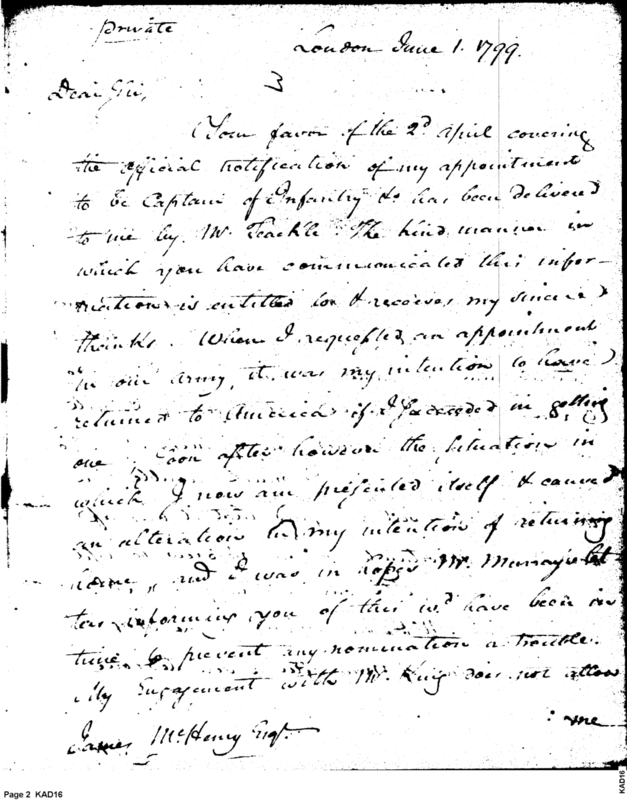 private
London June 1. 1799.
Dear Sir,
Your favor of the 2d April covering
the official notification of my appointment
to be Captain of Infantry &c has been delivered
to me by Mr Teackle. The kind manner in
which you have communicated this infor-
mation is entitled to & receives my sincere
thanks. When I requested an appointment
in our army, it was my intention to have
returned to America if I succeeded in getting
one, soon after however the situation in
which I now am presented itself & caused
an alteration in my intention of returning
home, and I was in hopes Mr. Murray's let
ter informing you of this wd have been in
time to prevent any nomination & trouble.
My Engagement with Mr King does not allow
: me
James McHenry Esqr.
Page 2 KAD16
KAD16